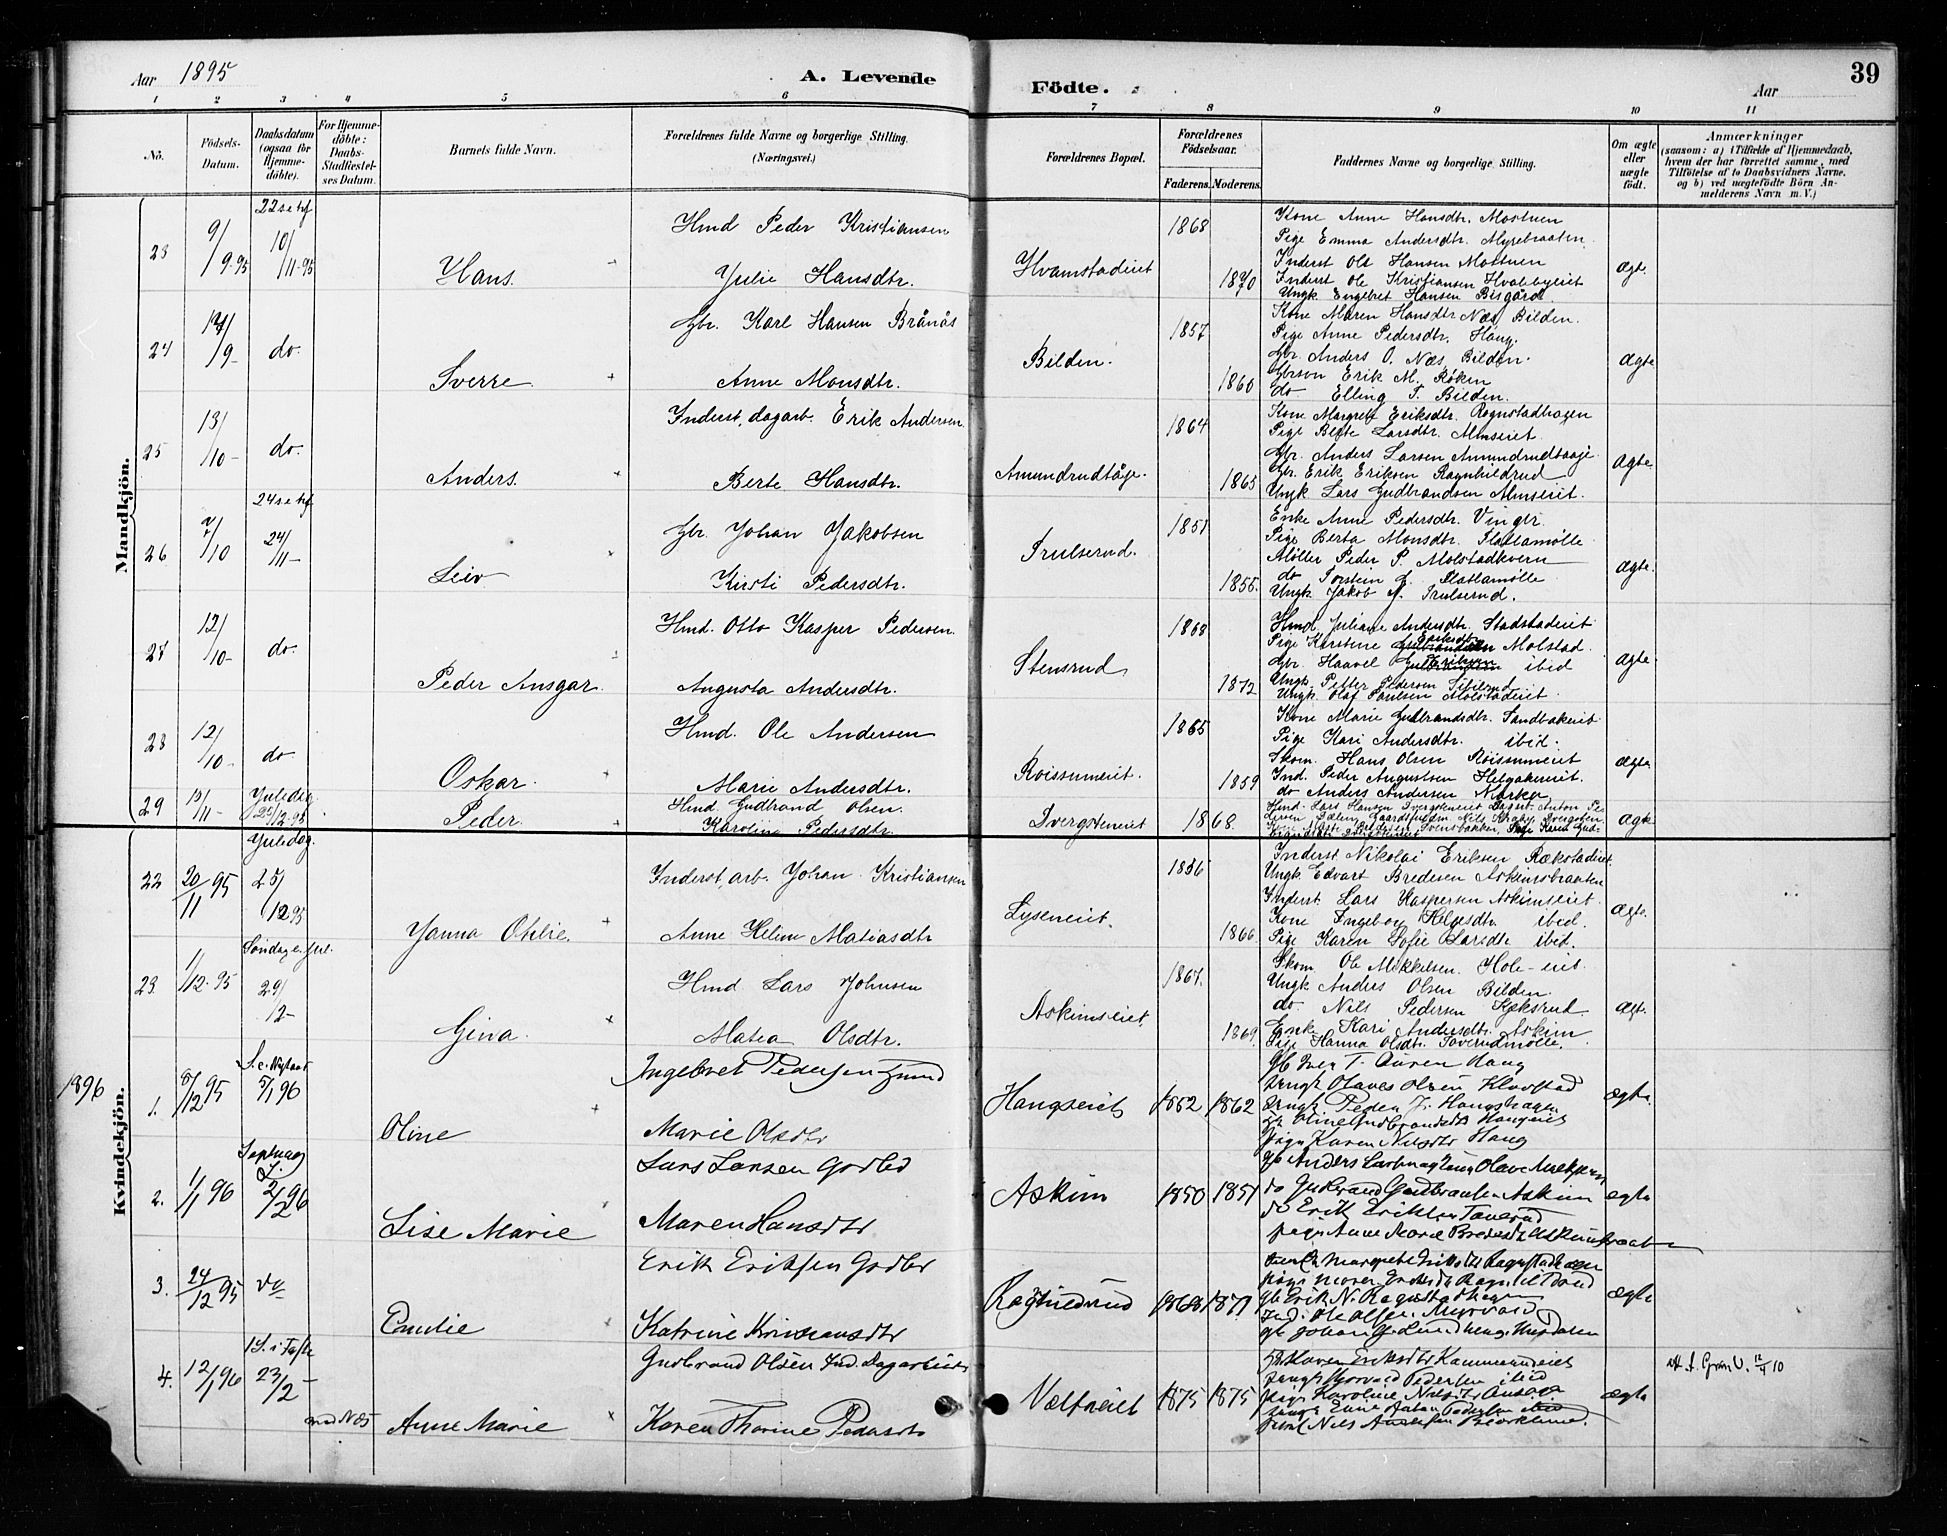 Aar 1895
A. Levende
Födte.
Aar
39
1 2 3 4 5 6 7 8 9 10 11
No.
Födsels-Datum.
Daabsdatum (ogsaa for Hjemme-döbte).
For Hjemme-döbte: Daabs-Stadfæstel-ses Datum.
Barnets fulde Navn.
Forældrenes fulde Navne og borgerlige Stilling. (Næringsvei.)
Forældrenes Bopæl.
Forældrenes Födselsaar.
Faderens. Moderens.
Faddernes Navne og borgerlige Stilling.
Om ægte eller uægte födt.
Anmærkninger
(saasom: a) i Tilfælde af Hjemmedaab, hvem der har forrettet samme, med Tilföielse af to Daabsvidners Navne, og b) ved uægtefödte Börn An-melderens Navn m. V.)
Mandkjön.
22 s e trf
23 9/9-95 10/11-95 Hans.
Hmd Peder Kristiansen
Julie Hansdtr.
Hvamstadeiet 1868 1870
Kone Anne Hansdtr. Mostuen
Pige Emma Andersdtr. Myrebraaten
Inderst Ole Hansen Mostuen
Inderst Ole Kristiansen Hvalbyeiet
Ungk Engebret Hansen Bisgård
ægte
24 14/9- do. Sverre
Gbr. Karl Hansen Brånås
Anne Monsdtr.
Bilden. 1857 1860
Kone Maren Hansdtr Næs Bilden.
Pige Anne Pedersdtr. Haug.
Gbr Anders O. Næs Bilden.
Gbrsøn Erik M. Røken
do Elling T. Bilden.
ægte
25 13/10- do. Anders.
Inderst, dagarb. Erik Andersen.
Berte Hansdtr.
Amundrudtåje. 1864 1865
Kone Margrete Eriksdtr. Rognstadhagen
Pige Berte Larsdtr. Almseiet
Gbr. Anders Larsen Amundrudtaaje
Gbr. Erik Eriksen Ragnhildrud
Ungk Lars Gudbrandsen Almseiet.
ægte
24 s e trf
26 7/10 24/11- Leiv
Gbr. Johan Jakobsen
Kirsti Pedersdtr.
Trulserud. 1851 1855.
Enke Anne Pedersdtr. Vinger
Pige Berta Monsdtr. Flatlamølle
Møller Peder P. Molstadkvern
do Torstein L. Flatlamølle
Ungk Jakob J. Trulserud.
ægte.
27 12/10- do. Peder Ansgar.
Hmd. Otto Kasper Pedersen.
Augusta Andersdtr.
Stensrud 1868 1872
Hmd. Juliane Andersdtr. Stadstadeiet
Pige Karstine Eriksdtr Molstad
Gbr. Haavel Eriksen ibid
Ungk. Petter Pedersen
Ungk. Olaf Paulsen Molstadeiet.
ægte
28 12/10- do Oskar.
Hmd. Ole Andersen
Marie Andersdtr.
Roissumeiet. 1865 1859
Kone Marie Gudbrandsdtr. Sandbakeiet
Pige Kari Andersdtr. ibid.
Skom. Hans Olsen Roissumeiet
Ind. Peder Augustsen Helgakereiet.
do Anders Andersen Morken
ægte
29 13/11- Juledag 25/12-95 Peder.
Hmd. Gudbrand Olsen.
Karoline Pedersdtr.
Dvergsteneiet 1868.
Hmd. Lars Hansen Dvergsteneiet Dagarb. Anton Pe-
ægte
Kvindekjön.
Juledag.
22 20/11 95 25/12 95 Janna Otilie.
Inderst, arb. Johan Kristiansen
Anne Helene Matiasdtr
Lyseneiet. 1856 1866.
Inderst Nikolai Eriksen Rækstadeiet
Ungk Edvart Bredesen Askimsbraaten
Inderst Lars Kaspersen Askimseiet.
Kone Ingeborg Helgesdtr ibid.
Pige Karen Sofie Larsdtr ibid.
ægte.
Søndag e. Jul.
23. 1/12-95 29/12- Gina.
Hmd Lars Johnsen
Matea Olsdtr.
Askimseiet. 1867. 1869.
Skom. Ole Mikkelsen Hole-eiet.
Ungk Anders Olsen Bilden.
do. Nils Pedersen Kjeksrud
Enke Kari Andersdtr. Askim
Pige Hanna Olsdtr. Soverudmølle.
ægte.
1896
S. e. Nytaar
1. 8/12 95 5/1 96 Oline
Ingebret Pedersen
Marie Olsdtr
Haugseiet 1852 1862
Gb Iver T. Auren Haug
Ungk Olaves Olsen Klovstad
Ungk Peder J. Haugshagen
Pige Karen Nilsdtr Haug
ægte.
Septuag S.
2. 1/1 96 2/2 96 Lise Marie
Lars Larsen Gbr
Maren Hansdtr
Askim 1850 1851
do Gudbrand Gudbrandsen Askim
do Erik Eriksen
Pige Anne Marie Bredesdtr Askimsbraaten
ægte
3. 24/12 95 do Emilie
Erik Eriksen Gbr
Katrine Kristiansdtr
Ragnhildrud 1868 1871
gb Erik N. Rognstadhagen
Ind. Ole Olsen
ægte
1 S. i Faste
4. 12/1 96 23/2- Anne Marie
ved Næs
Gudbrand Olsen Ind. Dagarbeider
Karen Thorine Pedersdtr
1875 1875
Karen Eriksdtr Kammerudeiet
Ungk Pedersen ibid
Pige Karoline Nilsdtr
ægte
12/4 10